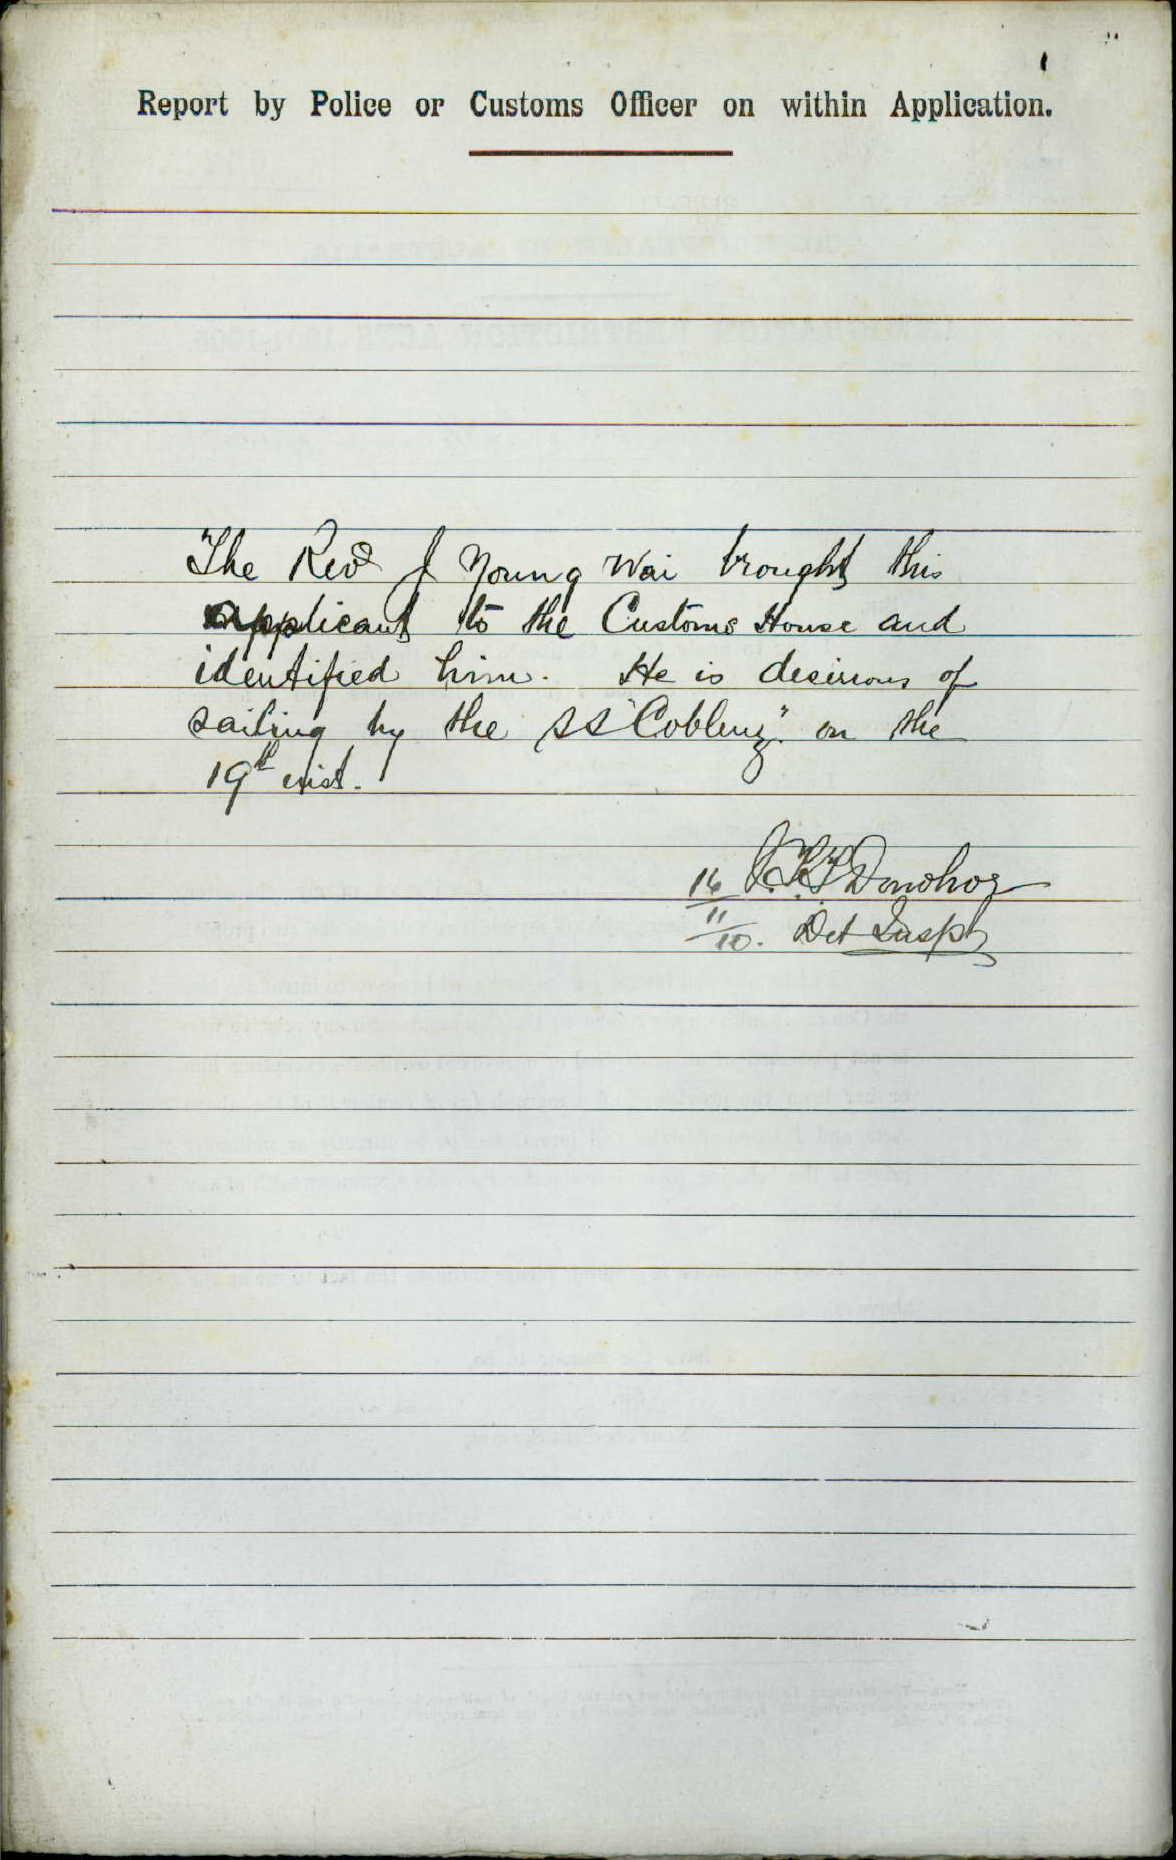 Report by Police or Customs Officer on within Application.
The Revd J Young Wai brought this
applicant to the Customs House and
identified him. He is desirous of
sailing by the SS "Coblenz" on the
19th inst.
16 Donohoe
11
10. Det Insp